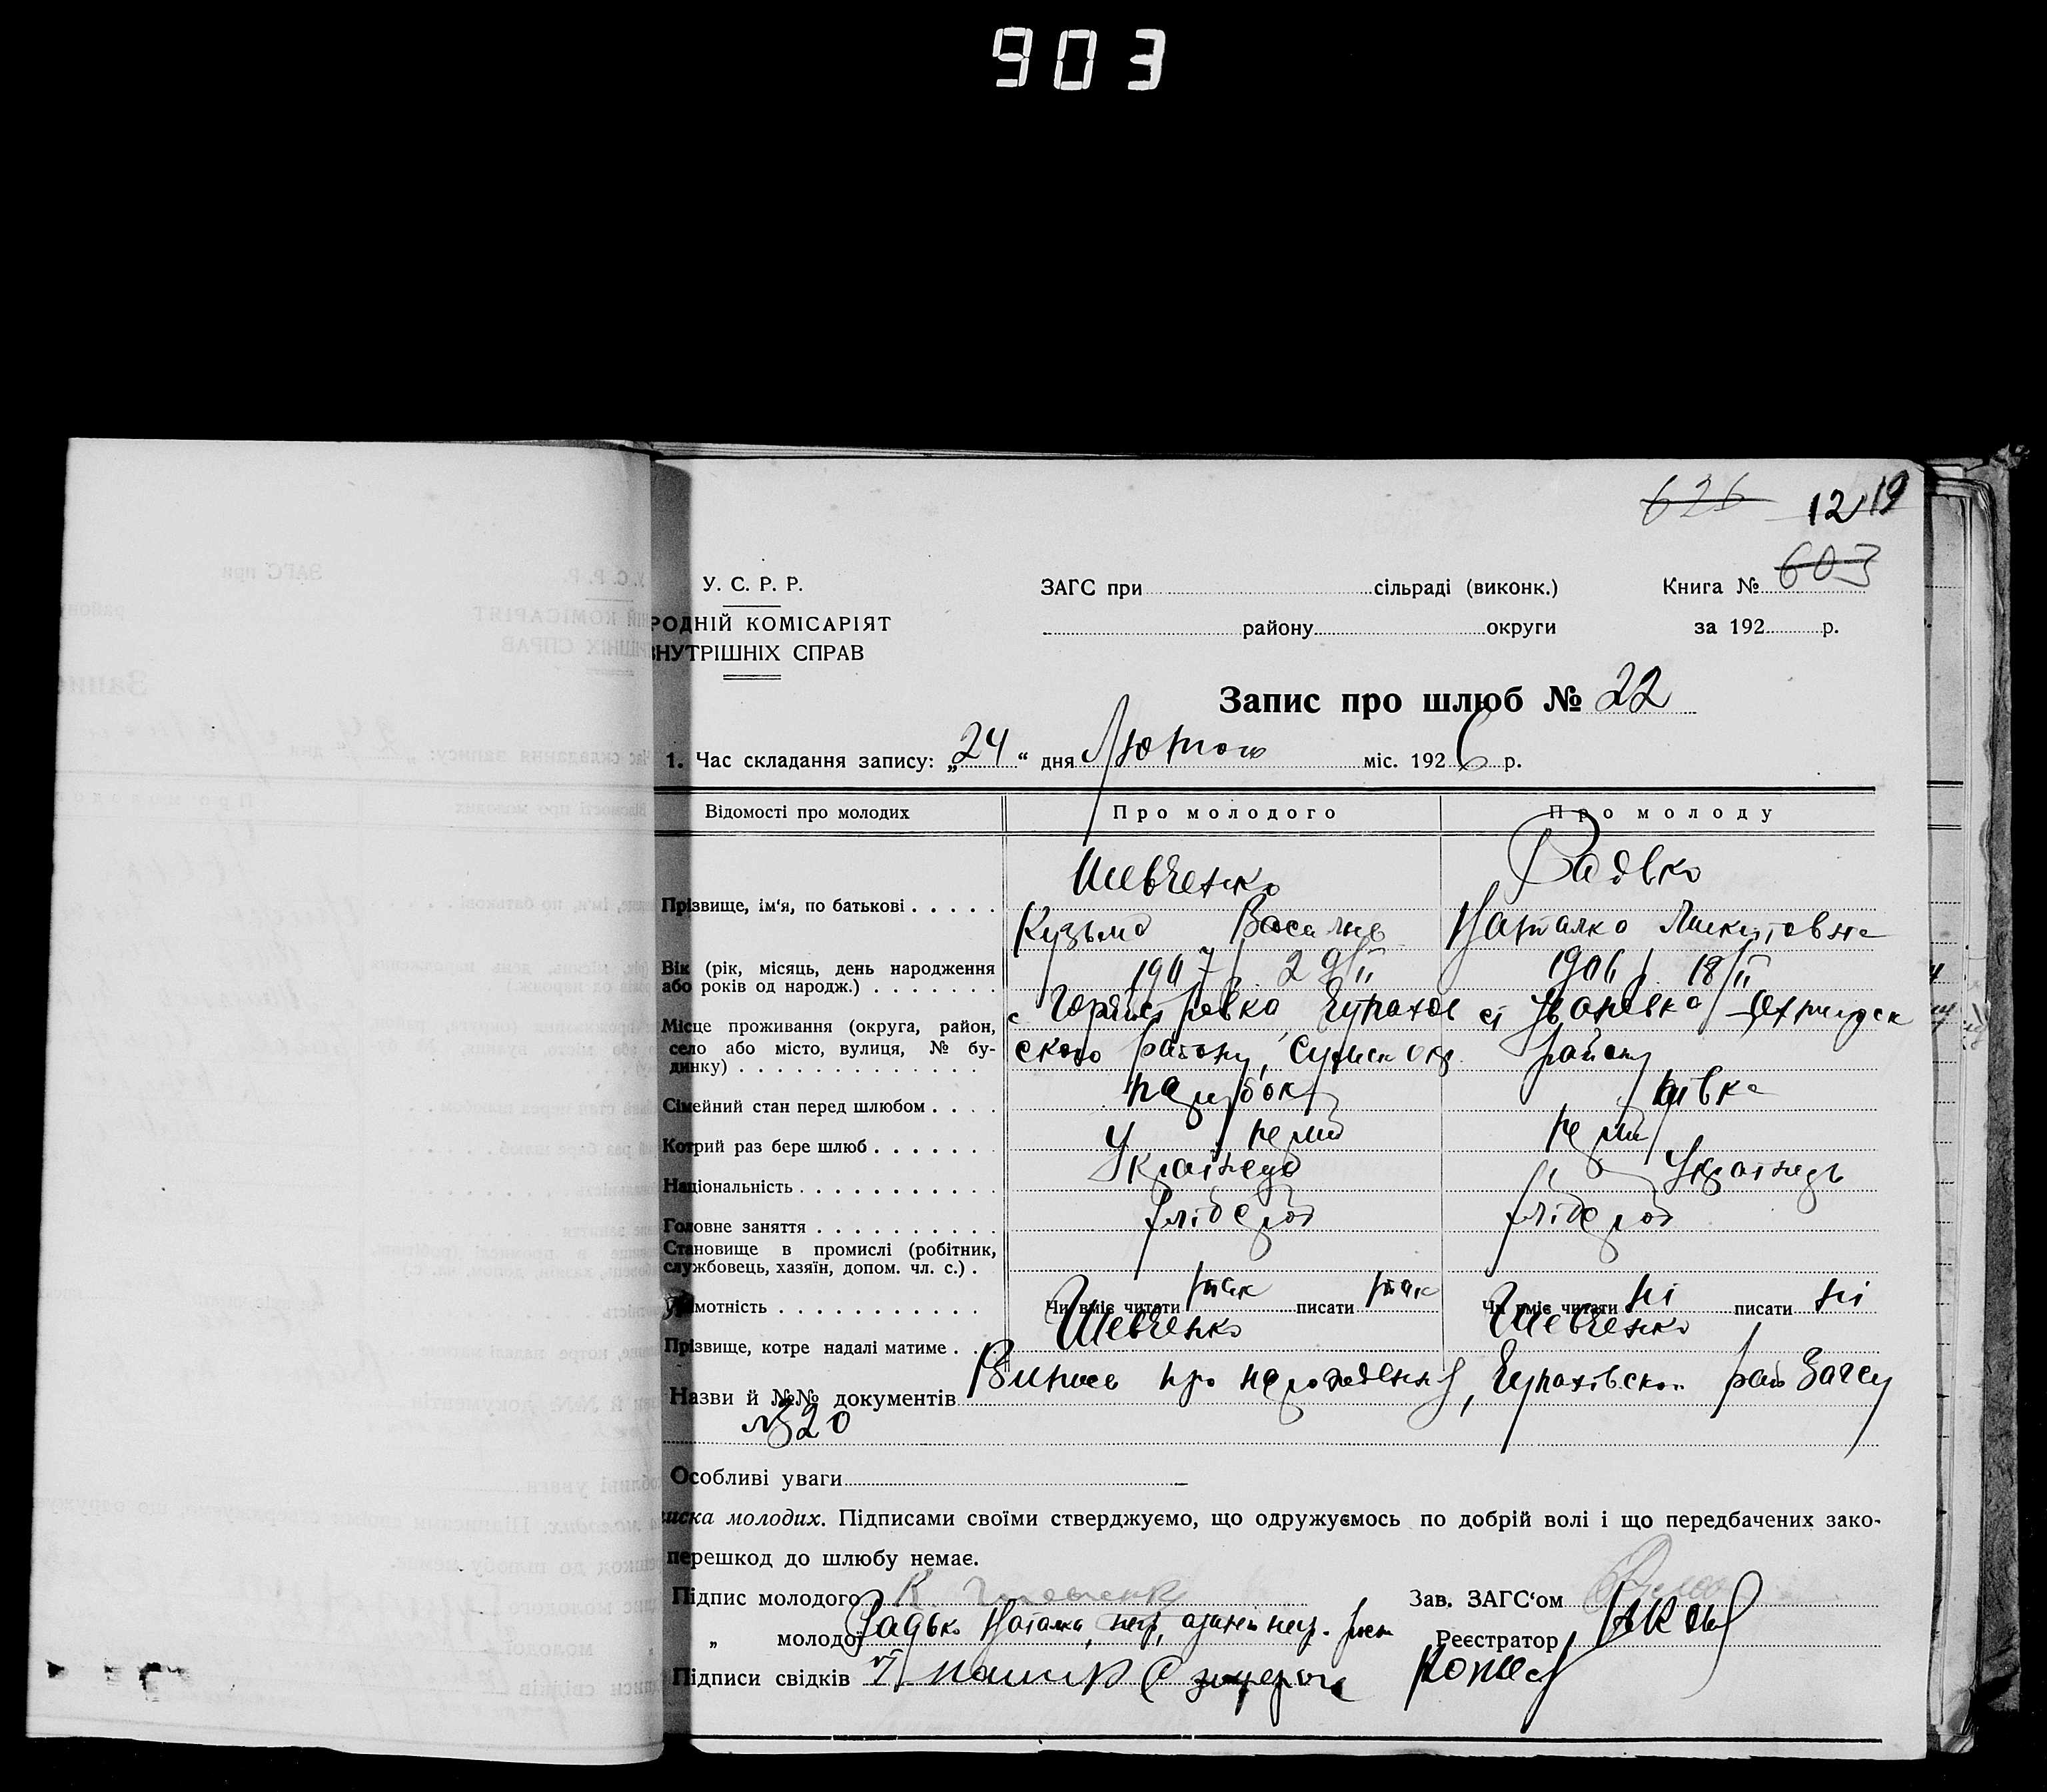 903
626 1219
603
У. С. Р. Р. ЗАГС при сільраді (виконк.) Книга №
РОДНІЙ КОМІСАРІЯТ району округи за 192 р.
ВНУТРІШНІХ СПРАВ
Запис про шлюб № 22
1. Час складання запису: „24“ дня Лютого міс. 1926 р.
Відомості про молодих Про молодого Про молоду
Шевченко Радько
Прізвище, ім'я, по батькові
Кузьма Наталка Микитовна
Вік (рік, місяць, день народження 1907 р. 29/II 1906 р. 18/II
або років од народж.)
Місце проживання (округа, район, с.
село або місто, вулиця, № бу- ского району, Сумск окр. району
динку)
Сімейний стан перед шлюбом парубок дівка
Котрий раз бере шлюб перший перший
Національність Українець Українець
Головне заняття хлібороб хлібороб
Становище в промислі (робітник,
службовець, хазяїн, допом. чл. с.)
Грамотність Чи вміє читати так писати так Чи вміє читати ні писати ні
Прізвище, котре надалі матиме Шевченко Шевченко
Назви й №№ документів Випись про народження, рай Загсу
№ 20
Особливі уваги
иска молодих. Підписами своїми стверджуємо, що одружуємось по добрій волі і що передбачених зако-
перешкод до шлюбу немає.
Підпис молодого К. Зав. ЗАГС'ом
„ молодої Радько Наталка, Реєстратор
Підписи свідків